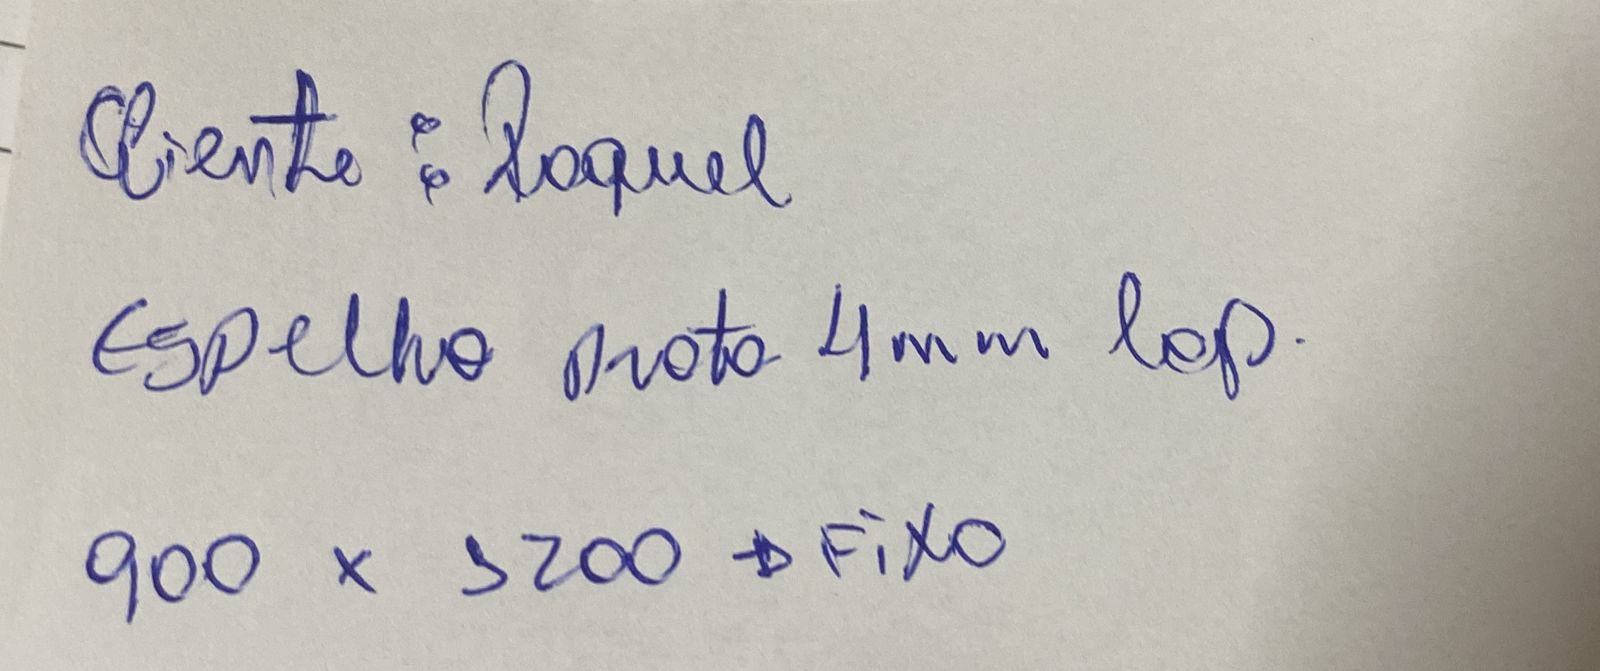 Cliente : Raquel
Espelho prata 4mm lap.
900 x 1200 → Fixo